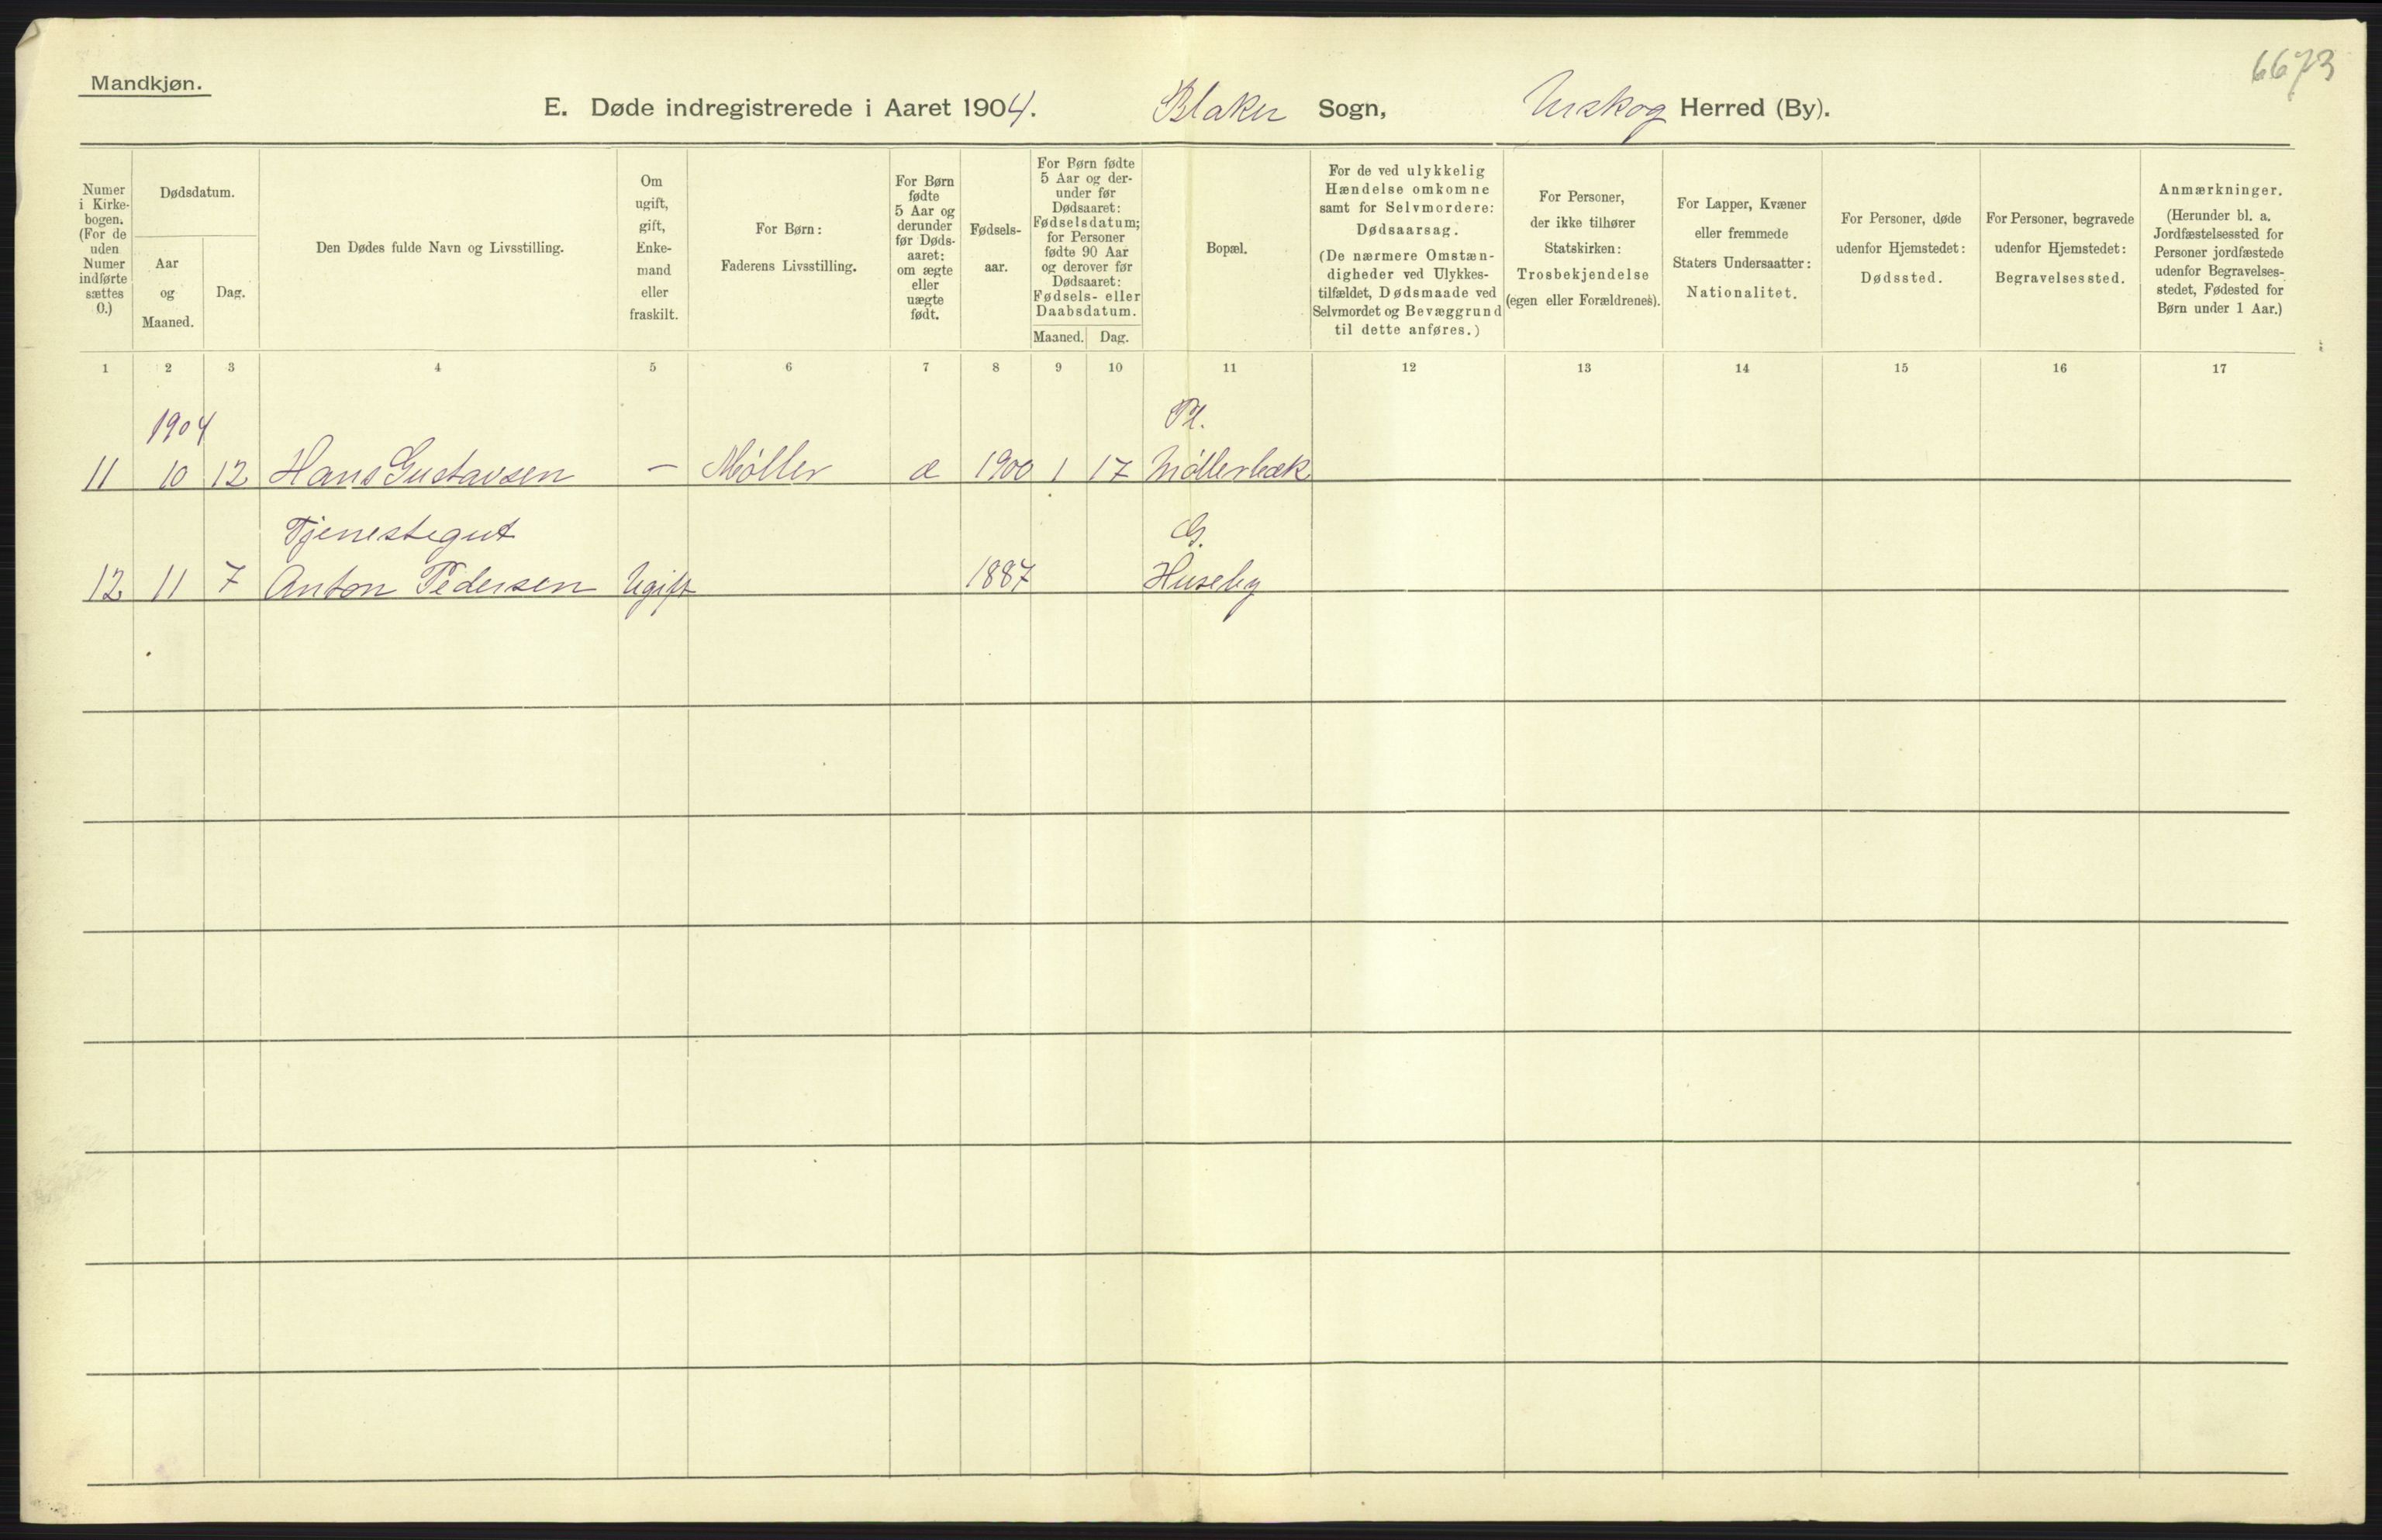 6673
Mandkjøn.
E. Døde indregistrerede i Aaret 1904. Blaker Sogn, Urskog Herred (By).
Numer
i Kirke-
bogen.
(For de
uden
Numer
indførte
sættes
0.)
Dødsdatum.
Aar
og
Maaned.
Dag.
Den Dødes fulde Navn og Livsstilling.
Om
ugift,
gift,
Enke-
mand
eller
fraskilt.
For Børn:
Faderens Livsstilling.
For Børn
fødte
5 Aar og
derunder
før Døds-
aaret:
om ægte
eller
uægte
født.
Fødsels-
aar.
For Børn fødte
5 Aar og der-
under før
Dødsaaret:
Fødselsdatum;
for Personer
fødte 90 Aar
og derover før
Dødsaaret:
Fødsels- eller
Daabsdatum.
Maaned. Dag.
Bopæl.
For de ved ulykkelig
Hændelse omkomne
samt for Selvmordere:
Dødsaarsag.
(De nærmere Omstæn-
digheder ved Ulykkes-
tilfældet, Dødsmaade ved
Selvmordet og Bevæggrund
til dette anføres.)
For Personer,
der ikke tilhører
Statskirken:
Trosbekjendelse
(egen eller Forældrenes).
For Lapper, Kvæner
eller fremmede
Staters Undersaatter:
Nationalitet.
For Personer, døde
udenfor Hjemstedet:
Dødssted.
For Personer, begravede
udenfor Hjemstedet:
Begravelsessted.
Anmærkninger.
(Herunder bl. a.
Jordfæstelsessted for
Personer jordfæstede
udenfor Begravelses-
stedet, Fødested for
Børn under 1 Aar.)
1 2 3 4 5 6 7 8 9 10 11 12 13 14 15 16 17
1904 Pl.
11 10 12 Hans Gustavsen — Møller æ 1900 1 17 Møllerbæk
Tjenestegut G.
12 11 7 Anton Pedersen Ugift 1887 Huseby